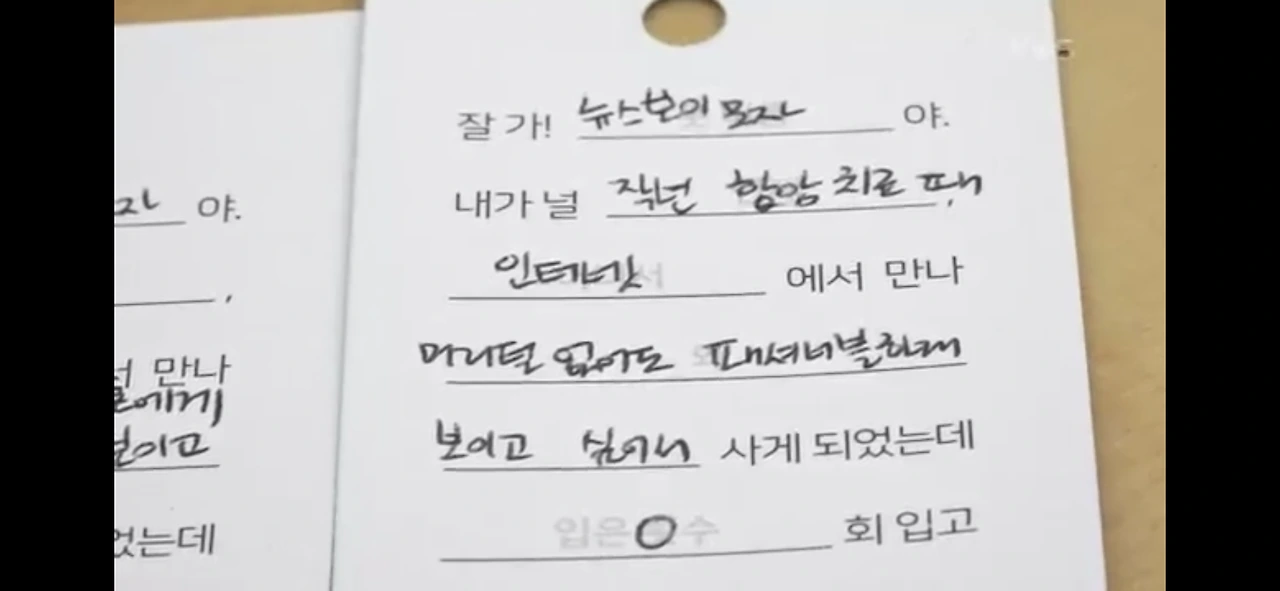 자 야.
,
만나
에게
이고
었는데
잘 가! 뉴스보이 모자 야.
내가 널 작년 항암 치료 때,
인터넷 에서 만나
머리털 없어도 패셔너블하게
보이고 싶어서 사게 되었는데
입은 0 수 회 입고